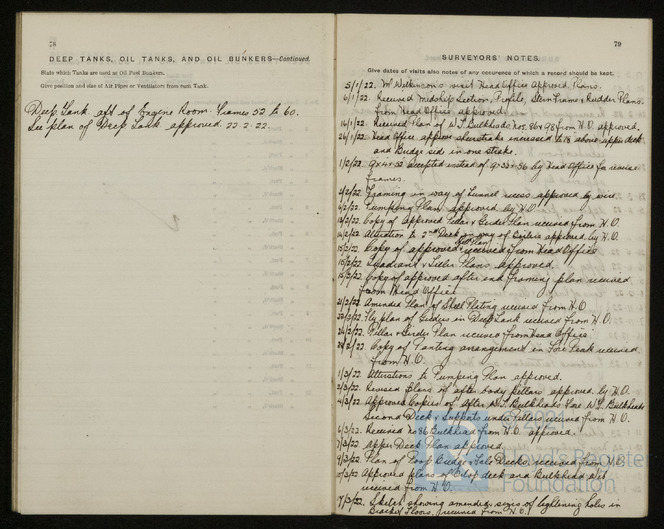 78
DEEP TANKS, OIL TANKS, AND OIL BUNKERS—Continued.
State which Tanks are used as Oil Fuel Bunkers.
Give position and size of Air Pipes or Ventilators from each Tank.
Deep Tank aft of Engine Room. Frames 52 to 60.
See plan of Deep Tank approved 22.2.22.
79
SURVEYORS' NOTES.
Give dates of visits also notes of any occurence of which a record should be kept.
5/1/22. Mr Watkinson's visit Head Office Approved Plans.
6/1/22. Received Midship Section, Profile, Stern Frame & Rudder Plans.
from Head Office, approved.
16/1/22. Received Plan of W.T. Bulkheads Nos. 36 & 98 from H.O. approved.
26/1/22. Head Office approve sheerstrake increased to above upper deck
and Bridge side in one strake.
1/2/22. accepted instead of by Head Office for
frames.
2/2/22. Framing in way of Tunnel recess approved by wire
Pumping Plan approved by H.O.
Copy of Approved Pillar & Girder Plan received from H.O.
Alteration to 2nd Deck in way of Boilers approved by H.O.
Copy of approved Plan received from Head Office
Quadrant & Tiller Plans approved.
Copy of approved after end framing plan received
from Head Office
21/2/22. Amended Plan of Shell Plating received from H.O
22/2/22. plan of Girders in Deep Tank received from H.O.
24/2/22. Pillar & Girder Plan received from Head Office.
Copy of Panting arrangement in Fore Peak received
from H.O.
1/3/22. Alterations to Pumping Plan approved.
2/3/22. Revised Plans of after body Pillars approved by H.O.
4/3/22. Approved Copies of After W.T. Bulkheads, Fore W.T. Bulkheads
Second Deck & Supports under Pillars received from H.O.
6/3/22. Received No 36 Bulkhead from H.O. approved.
7/3/22. Upper Deck Plan approved.
9/3/22. Plan of Poop Bridge Decks received from H.O
Approved plans of deck and Bulkhead
received from H.O.
Sketch showing amended sizes of lightening holes in
Bracket Floors, received from H.O.
© 2021
Lloyd's Register
Foundation